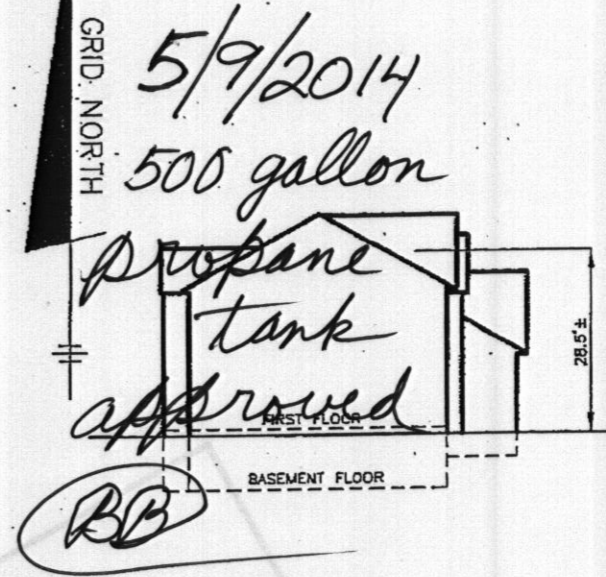 GRID NORTH
5/9/2014
500 gallon
propane
tank
28.5'±
approved
FIRST FLOOR
BASEMENT FLOOR
BB